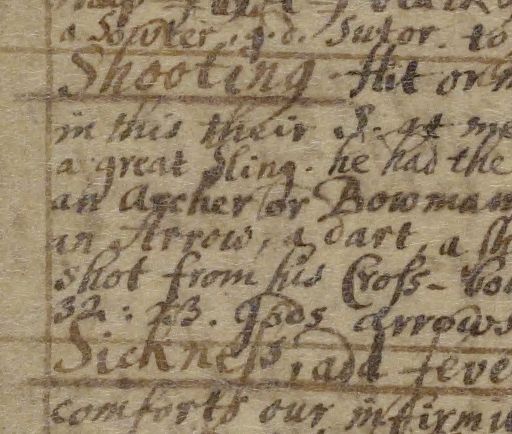 a Sowter, q.d. Sutor. to
Shooting Hit or
in this their S. at me
a great Sling. he had the
an Archer or Bowman
an Arrow, a dart, a sh
shot from his Cross-bo
32:23. Gods arrows
Sickness, add feve
comforts our infirmi